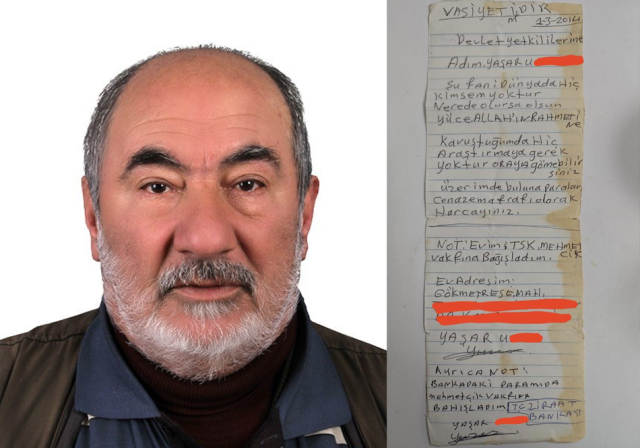 VASİYETİMDİR
1-3-2014
Devlet yetkililerine
Adım. YAŞAR U
Şu fani Dünyada Hiç
kimsem yoktur
Nerede olursa olsun
yüce ALLAH'IN RAHMETİ
NE
Kavuştuğumda Hiç
Araştırmaya gerek
yoktur ORAYA gömebilir
siniz
üzerimde buluna paraları
cenaze mafrafı olarak
Harcayınız.
NOT: Evimi TSK. MEHMET
CİK
vakfına Bağışladım.
Ev Adresim:
GÖKMEYDESE MAH.
YAŞAR U
AYRICA NOT:
BANKADAKİ PARAMIDA
mehmetçik VAKFINA
BAHIŞLADIM TC ZİRAAT
BANKASI
YAŞAR